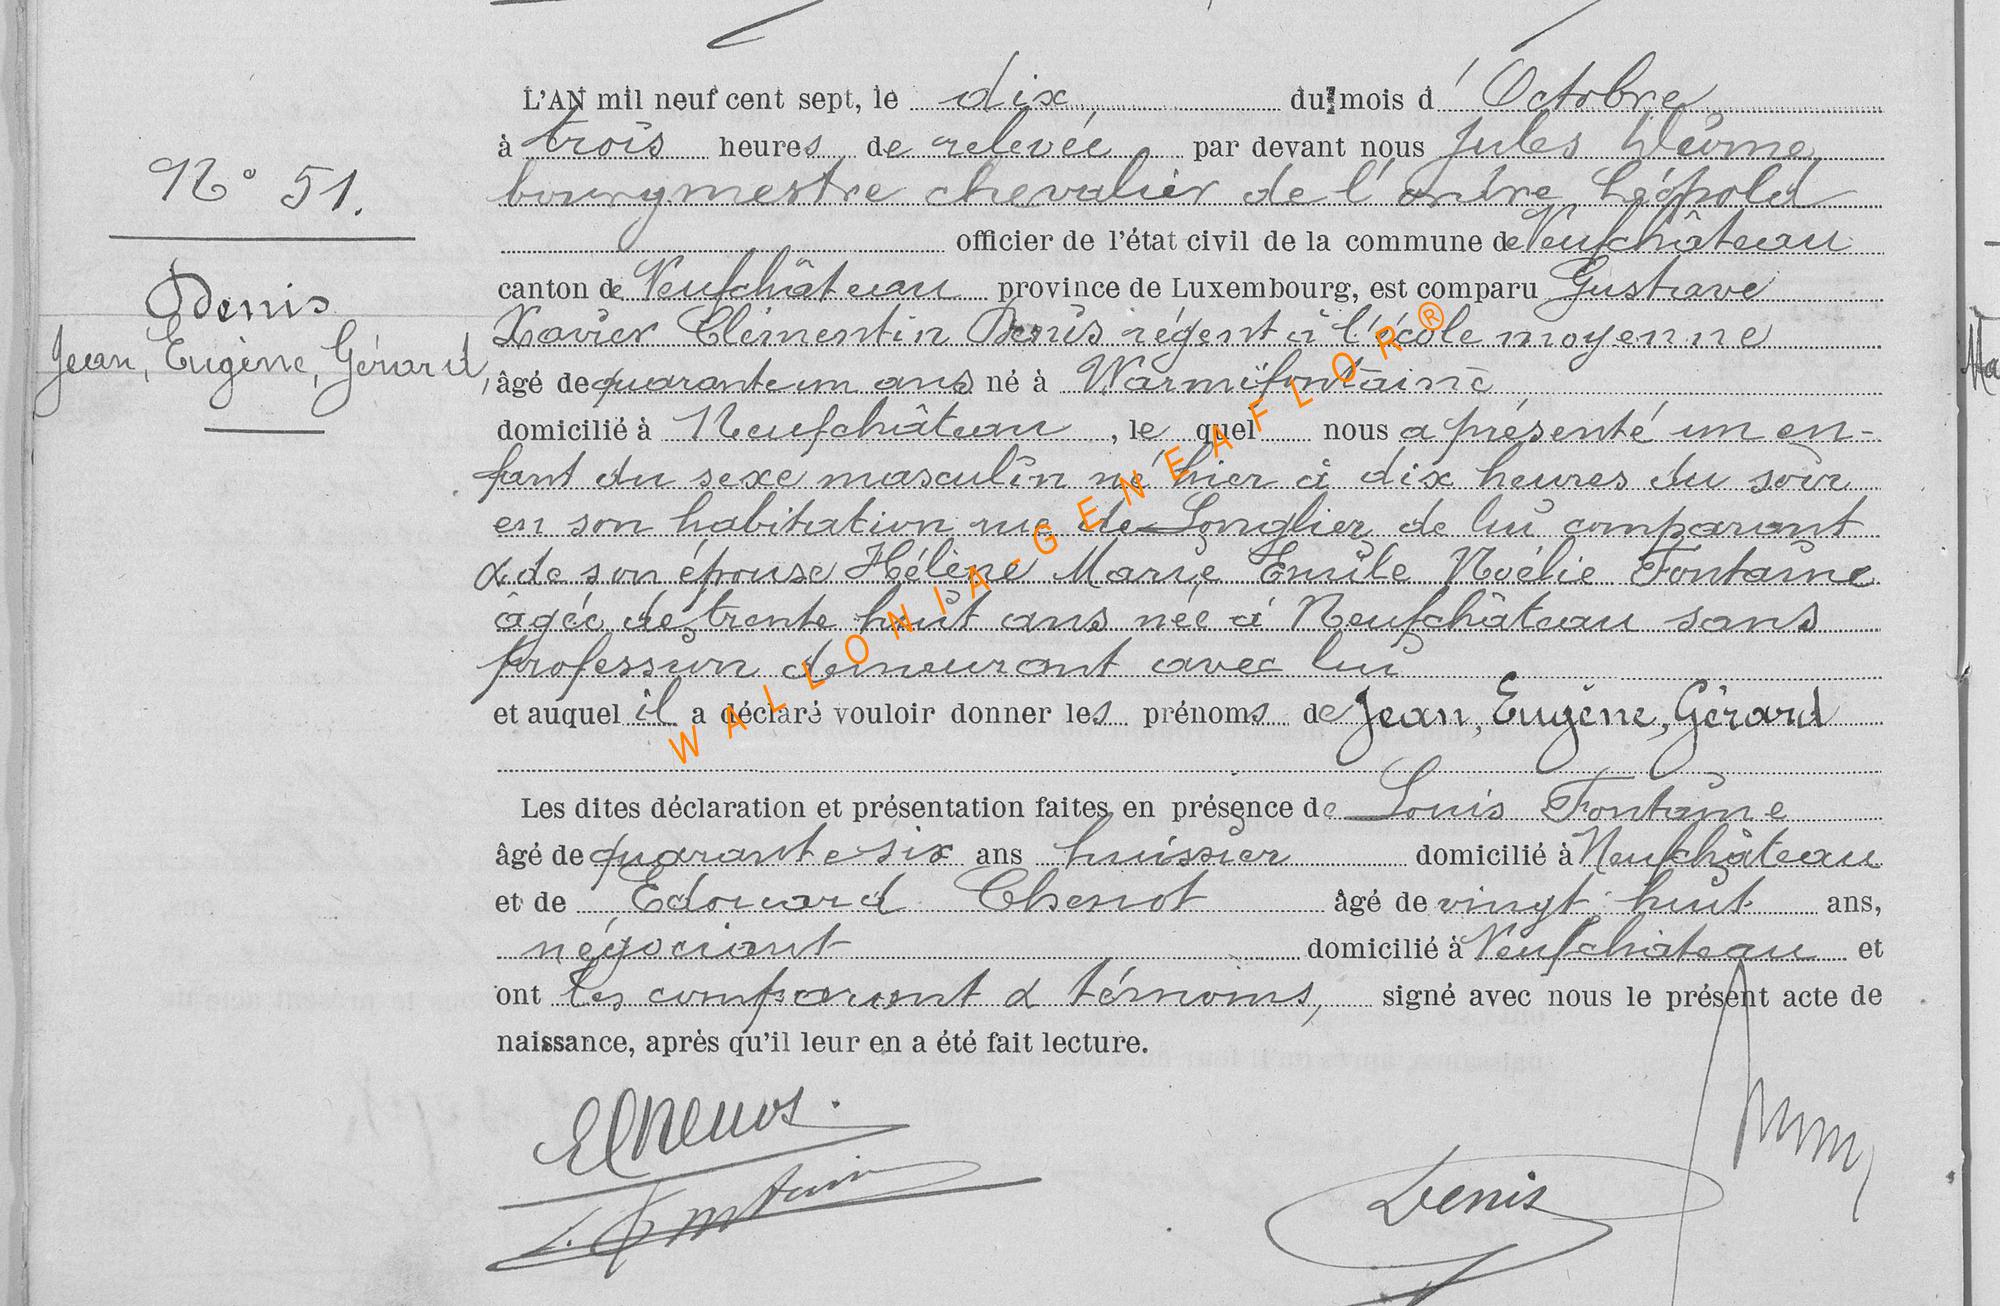 L'AN mil neuf cent sept, le dix du mois d'Octobre
à trois heures de relevée par devant nous Jules
N° 51.
bourgmestre chevalier de l'ordre Léopold
officier de l'état civil de la commune de Neufchâteau
canton de Neufchâteau province de Luxembourg, est comparu Gustave
Denis
Xavier Clémentin Denis régent à l'école moyenne
Jean, Eugène, Gérard,
âgé de quarante un ans né à Warmifontaine
domicilié à Neufchâteau, le quel nous a présenté un en-
fant du sexe masculin né hier à dix heures du soir
en son habitation rue de Longlier de lui comparant
& de son épouse Hélène Marie Emile Noélie Fontaine
âgée de trente huit ans née à Neufchâteau sans
profession demeurant avec lui
et auquel il a déclaré vouloir donner les prénoms de Jean, Eugène, Gérard
Les dites déclaration et présentation faites en présence de Louis Fontaine
âgé de quarante six ans huissier domicilié à Neufchâteau
et de Edouard Chenot âgé de vingt huit ans,
négociant domicilié à Neufchâteau et
ont les comparant & témoins, signé avec nous le présent acte de
naissance, après qu'il leur en a été fait lecture.
EChenot.
L. Fontaine
Denis
WALLONIA-GENEAFLOR®